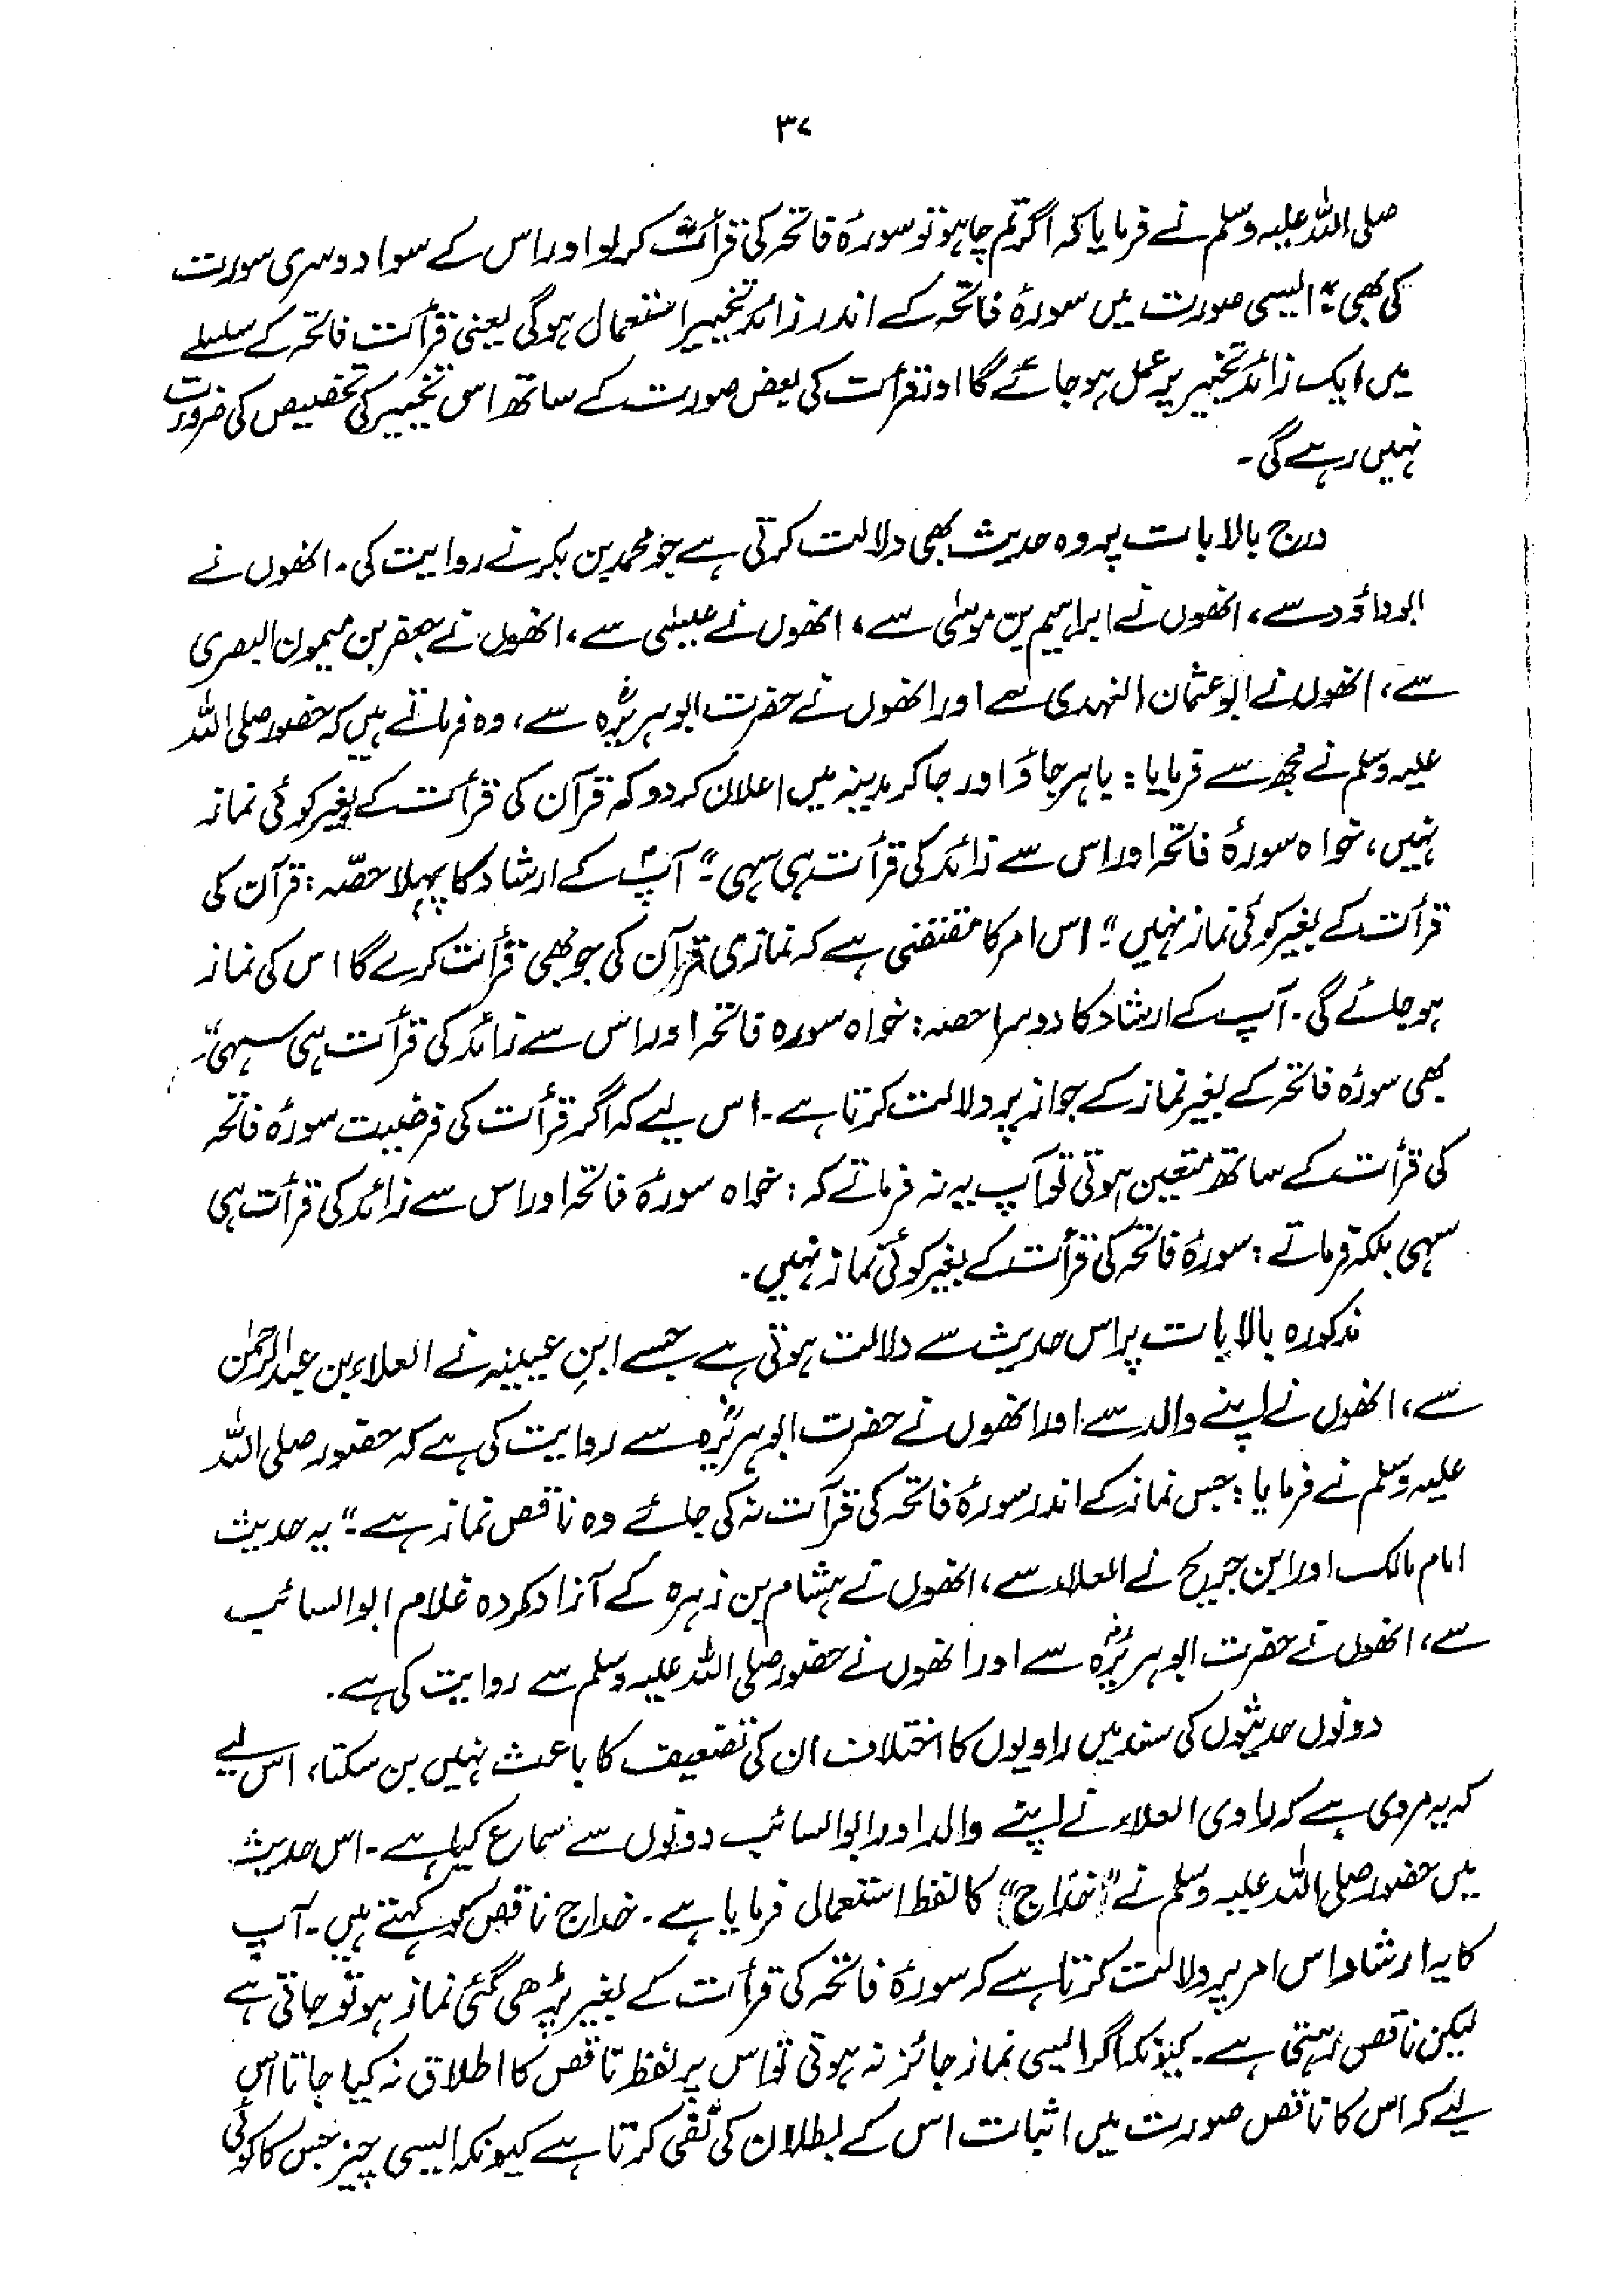 ۳۷
صلی اللہ علیہ وسلم نے فرمایا کہ اگر تم چاہو تو سورۂ فاتحہ کی قرأت کر لو اور اس کے سوا دوسری سورت
کی بھی"۔ ایسی صورت میں سورۂ فاتحہ کے اندر زائد تخییر استعمال ہوگی یعنی قرأت فاتحہ کے سلسلے
میں ایک زائد تخییر پر عمل ہو جائے گا اور قرأت کی بعض صورت کے ساتھ اس تخییر کی تخصیص کی ضرورت
نہیں رہے گی۔
درج بالا بات پر وہ حدیث بھی دلالت کرتی ہے جو محمد بن بکر نے روایت کی۔ انھوں نے
ابوداؤد سے، انھوں نے ابراہیم بن موسیٰ سے، انھوں نے عیسیٰ سے، انھوں نے جعفر بن میمون البصری
سے، انھوں نے ابو عثمان النہدی سے اور انھوں نے حضرت ابوہریرہؓ سے، وہ فرماتے ہیں کہ حضور صلی اللہ
علیہ وسلم نے مجھ سے فرمایا: باہر جاؤ اور جا کر مدینہ میں اعلان کر دو کہ قرآن کی قرأت کے بغیر کوئی نماز
نہیں، خواہ سورۂ فاتحہ اور اس سے زائد کی قرأت ہی سہی"۔ آپؐ کے ارشاد کا پہلا حصّہ: قرآن کی
قرأت کے بغیر کوئی نماز نہیں"۔ اس امر کا مقتضی ہے کہ نمازی قرآن کی جو بھی قرأت کرے گا اس کی نماز
ہو جائے گی۔ آپ کے ارشاد کا دوسرا حصہ: خواہ سورہ فاتحہ اور اس سے زائد کی قرأت ہی سہی"۔
بھی سورۂ فاتحہ کے بغیر نماز کے جواز پر دلالت کرتا ہے۔ اس لیے کہ اگر قرأت کی فرضیت سورۂ فاتحہ
کی قرأت کے ساتھ متعین ہوتی تو آپ یہ نہ فرماتے کہ: خواہ سورۂ فاتحہ اور اس سے زائد کی قرأت ہی
سہی بلکہ فرماتے: سورۂ فاتحہ کی قرأت کے بغیر کوئی نماز نہیں۔
مذکورہ بالا بات پر اس حدیث سے دلالت ہوتی ہے جسے ابنِ عیینہ نے العلاء بن عبدالرحمٰن
سے، انھوں نے اپنے والد سے اور انھوں نے حضرت ابوہریرہؓ سے روایت کی ہے کہ حضور صلی اللہ
علیہ وسلم نے فرمایا: جس نماز کے اندر سورۂ فاتحہ کی قرآت نہ کی جائے وہ ناقص نماز ہے"۔ یہ حدیث
امام مالک اور ابن جریج نے العلاء سے، انھوں نے ہشام بن زہرہ کے آزاد کردہ غلام ابو السائب
سے، انھوں نے حضرت ابوہریرہؓ سے اور انھوں نے حضور صلی اللہ علیہ وسلم سے روایت کی ہے۔
دونوں حدیثوں کی سند میں راویوں کا اختلاف ان کی تضعیف کا باعث نہیں بن سکتا، اس لیے
کہ یہ مروی ہے کہ راوی العلاء نے اپنے والد اور ابو السائب دونوں سے سماع کیا ہے۔ اس حدیث
میں حضور صلی اللہ علیہ وسلم نے "(خداج)" کا لفظ استعمال فرمایا ہے۔ خداج ناقص کو کہتے ہیں۔ آپ
کا یہ ارشاد اس امر پر دلالت کرتا ہے کہ سورۂ فاتحہ کی قرأت کے بغیر پڑھی گئی نماز ہو تو جاتی ہے
لیکن ناقص رہتی ہے۔ کیونکہ اگر ایسی نماز جائز نہ ہوتی تو اس پر لفظ ناقص کا اطلاق نہ کیا جاتا اس
لیے کہ اس کا ناقص صورت میں اثبات اس کے بطلان کی نفی کرتا ہے کیونکہ ایسی چیز جس کا کوئی